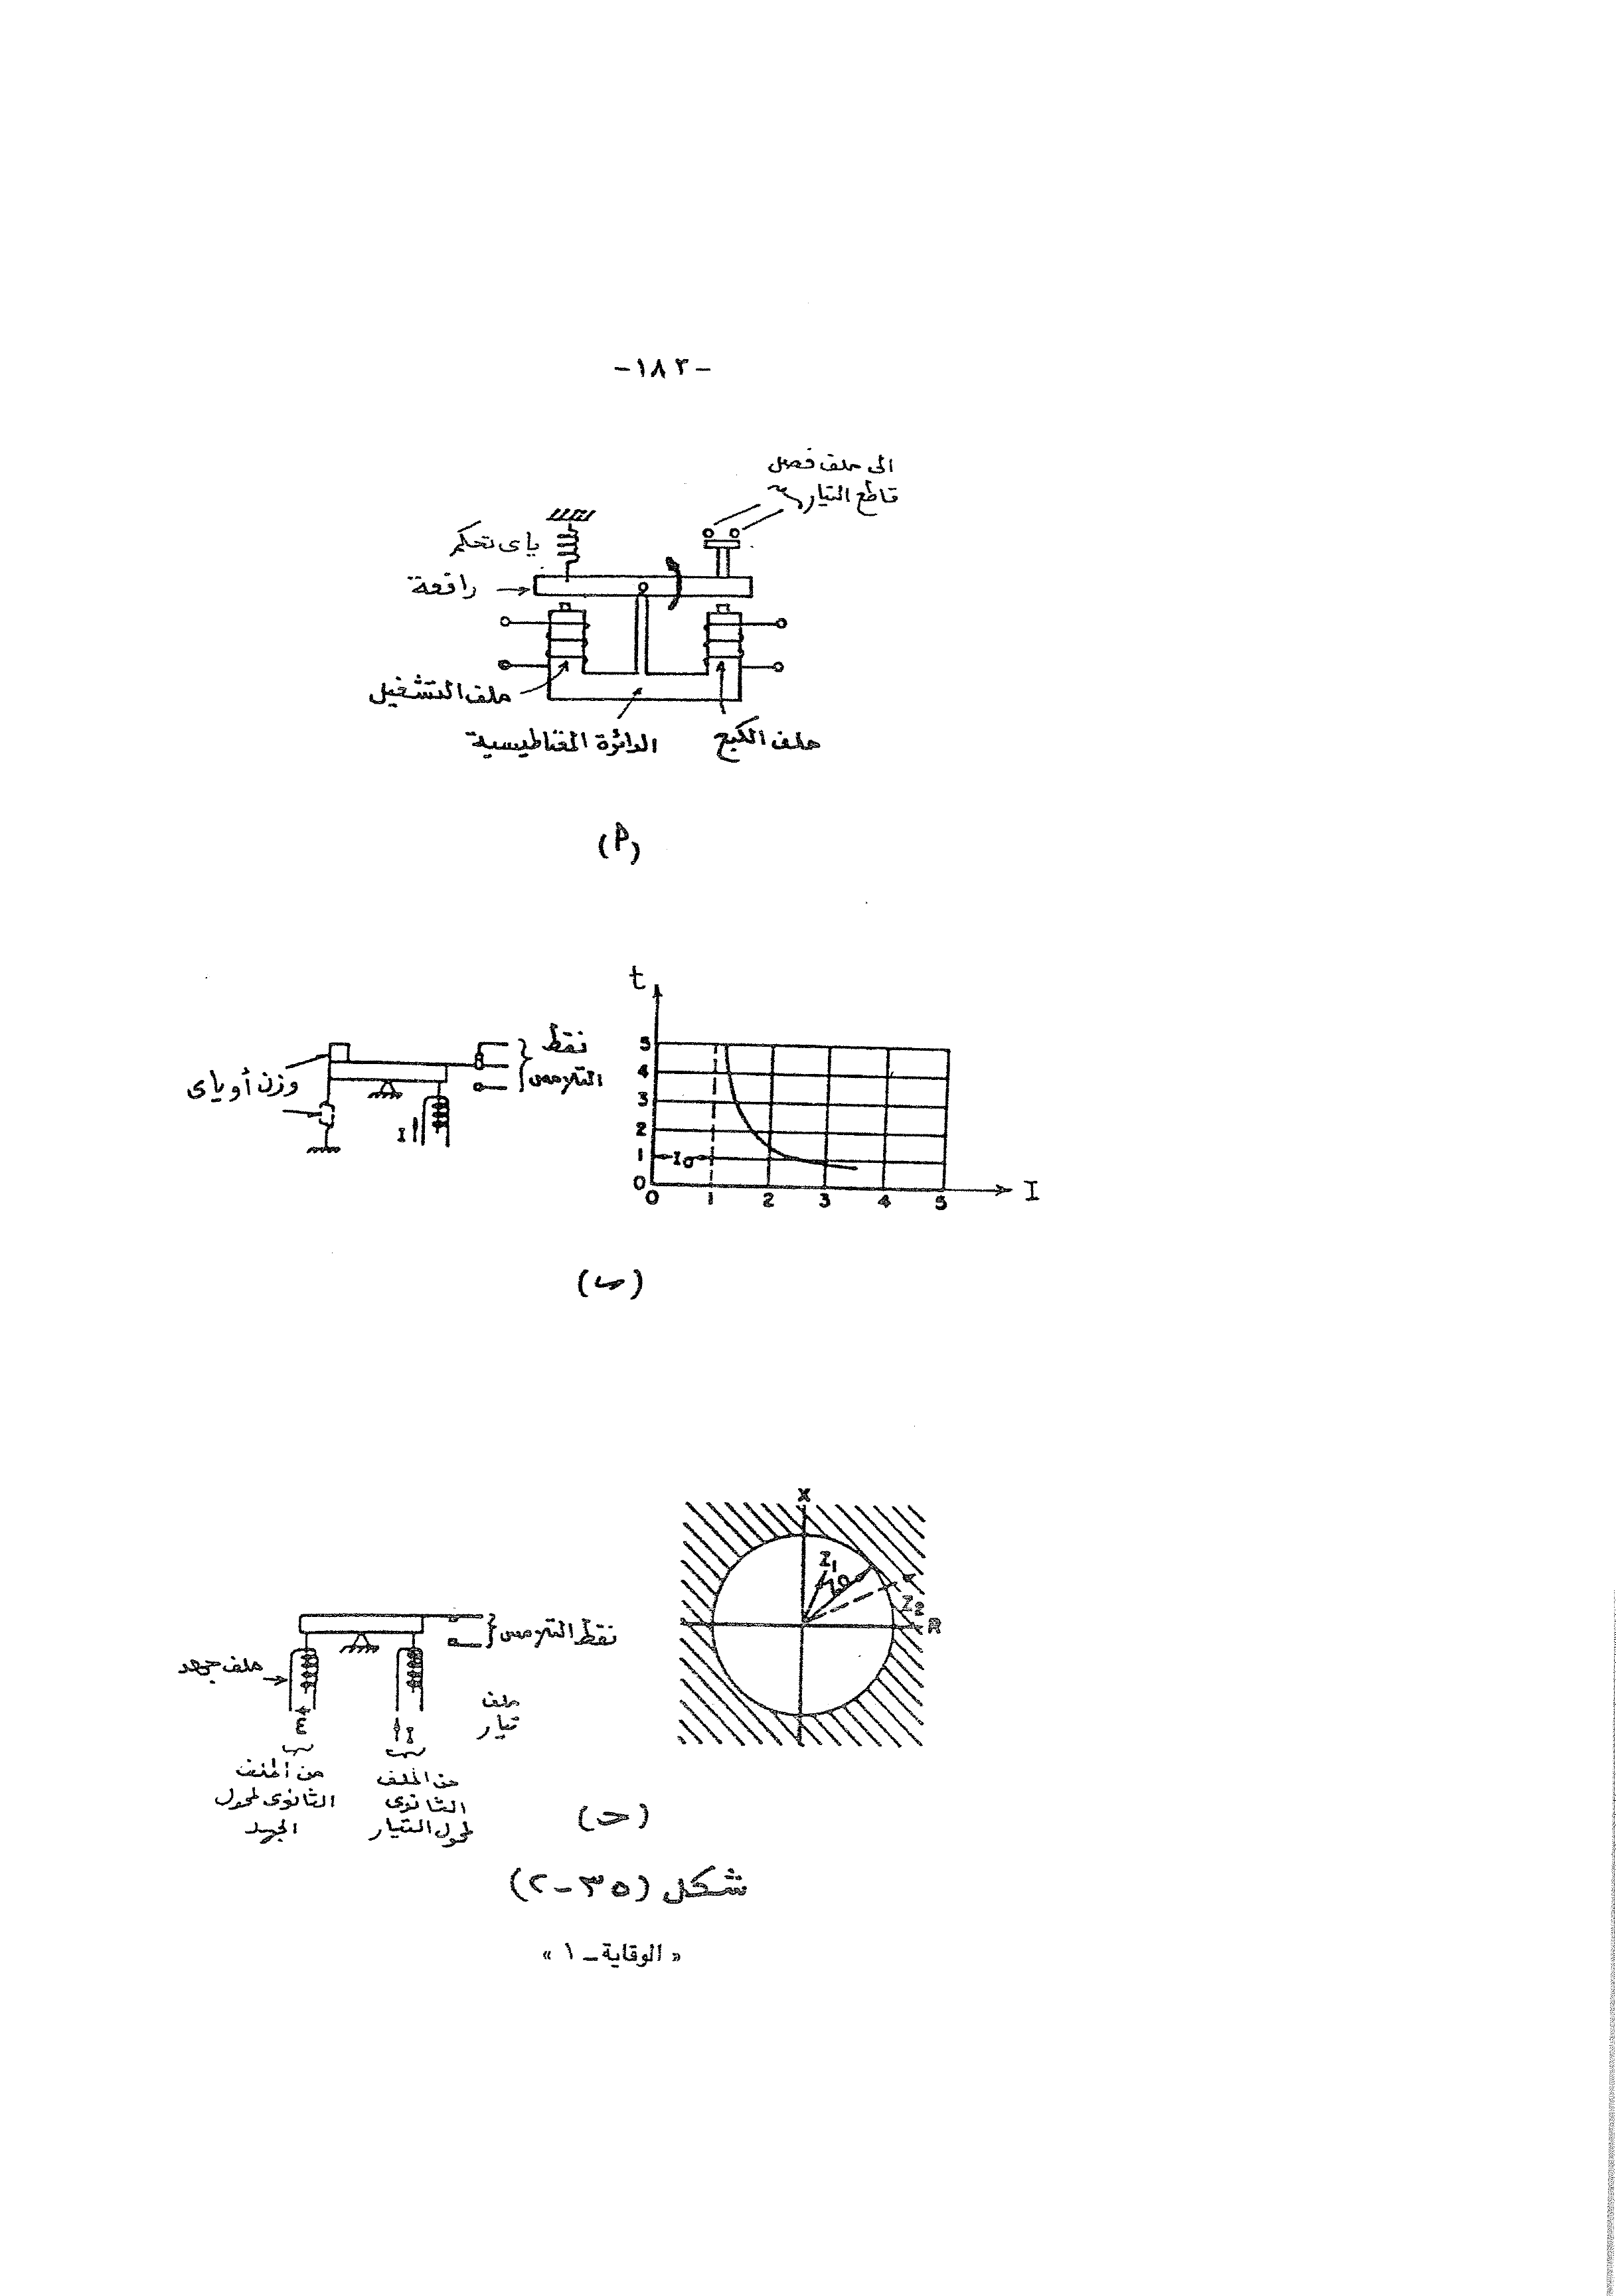 -١٨٣-
الى ملف فصل
قاطع التيار
ياى تحكم
رافعة
ملف التشغيل
الدائرة المغناطيسية
ملف الكبح
(أ)
t
5
4
3
2
1
0
I₀
0 1 2 3 4 5
I
نقط
التلامس
وزن أو ياى
I
(ب)
X
Z₁
θ
Z₂
R
نقط التلامس
ملف جهد
ملف
تيار
E
I
من الملف
الثانوى لمحول
الجهد
من الملف
الثانوى
لمحول التيار
(حـ)
شكل (٣٥-٢)
« الوقاية - ١ »